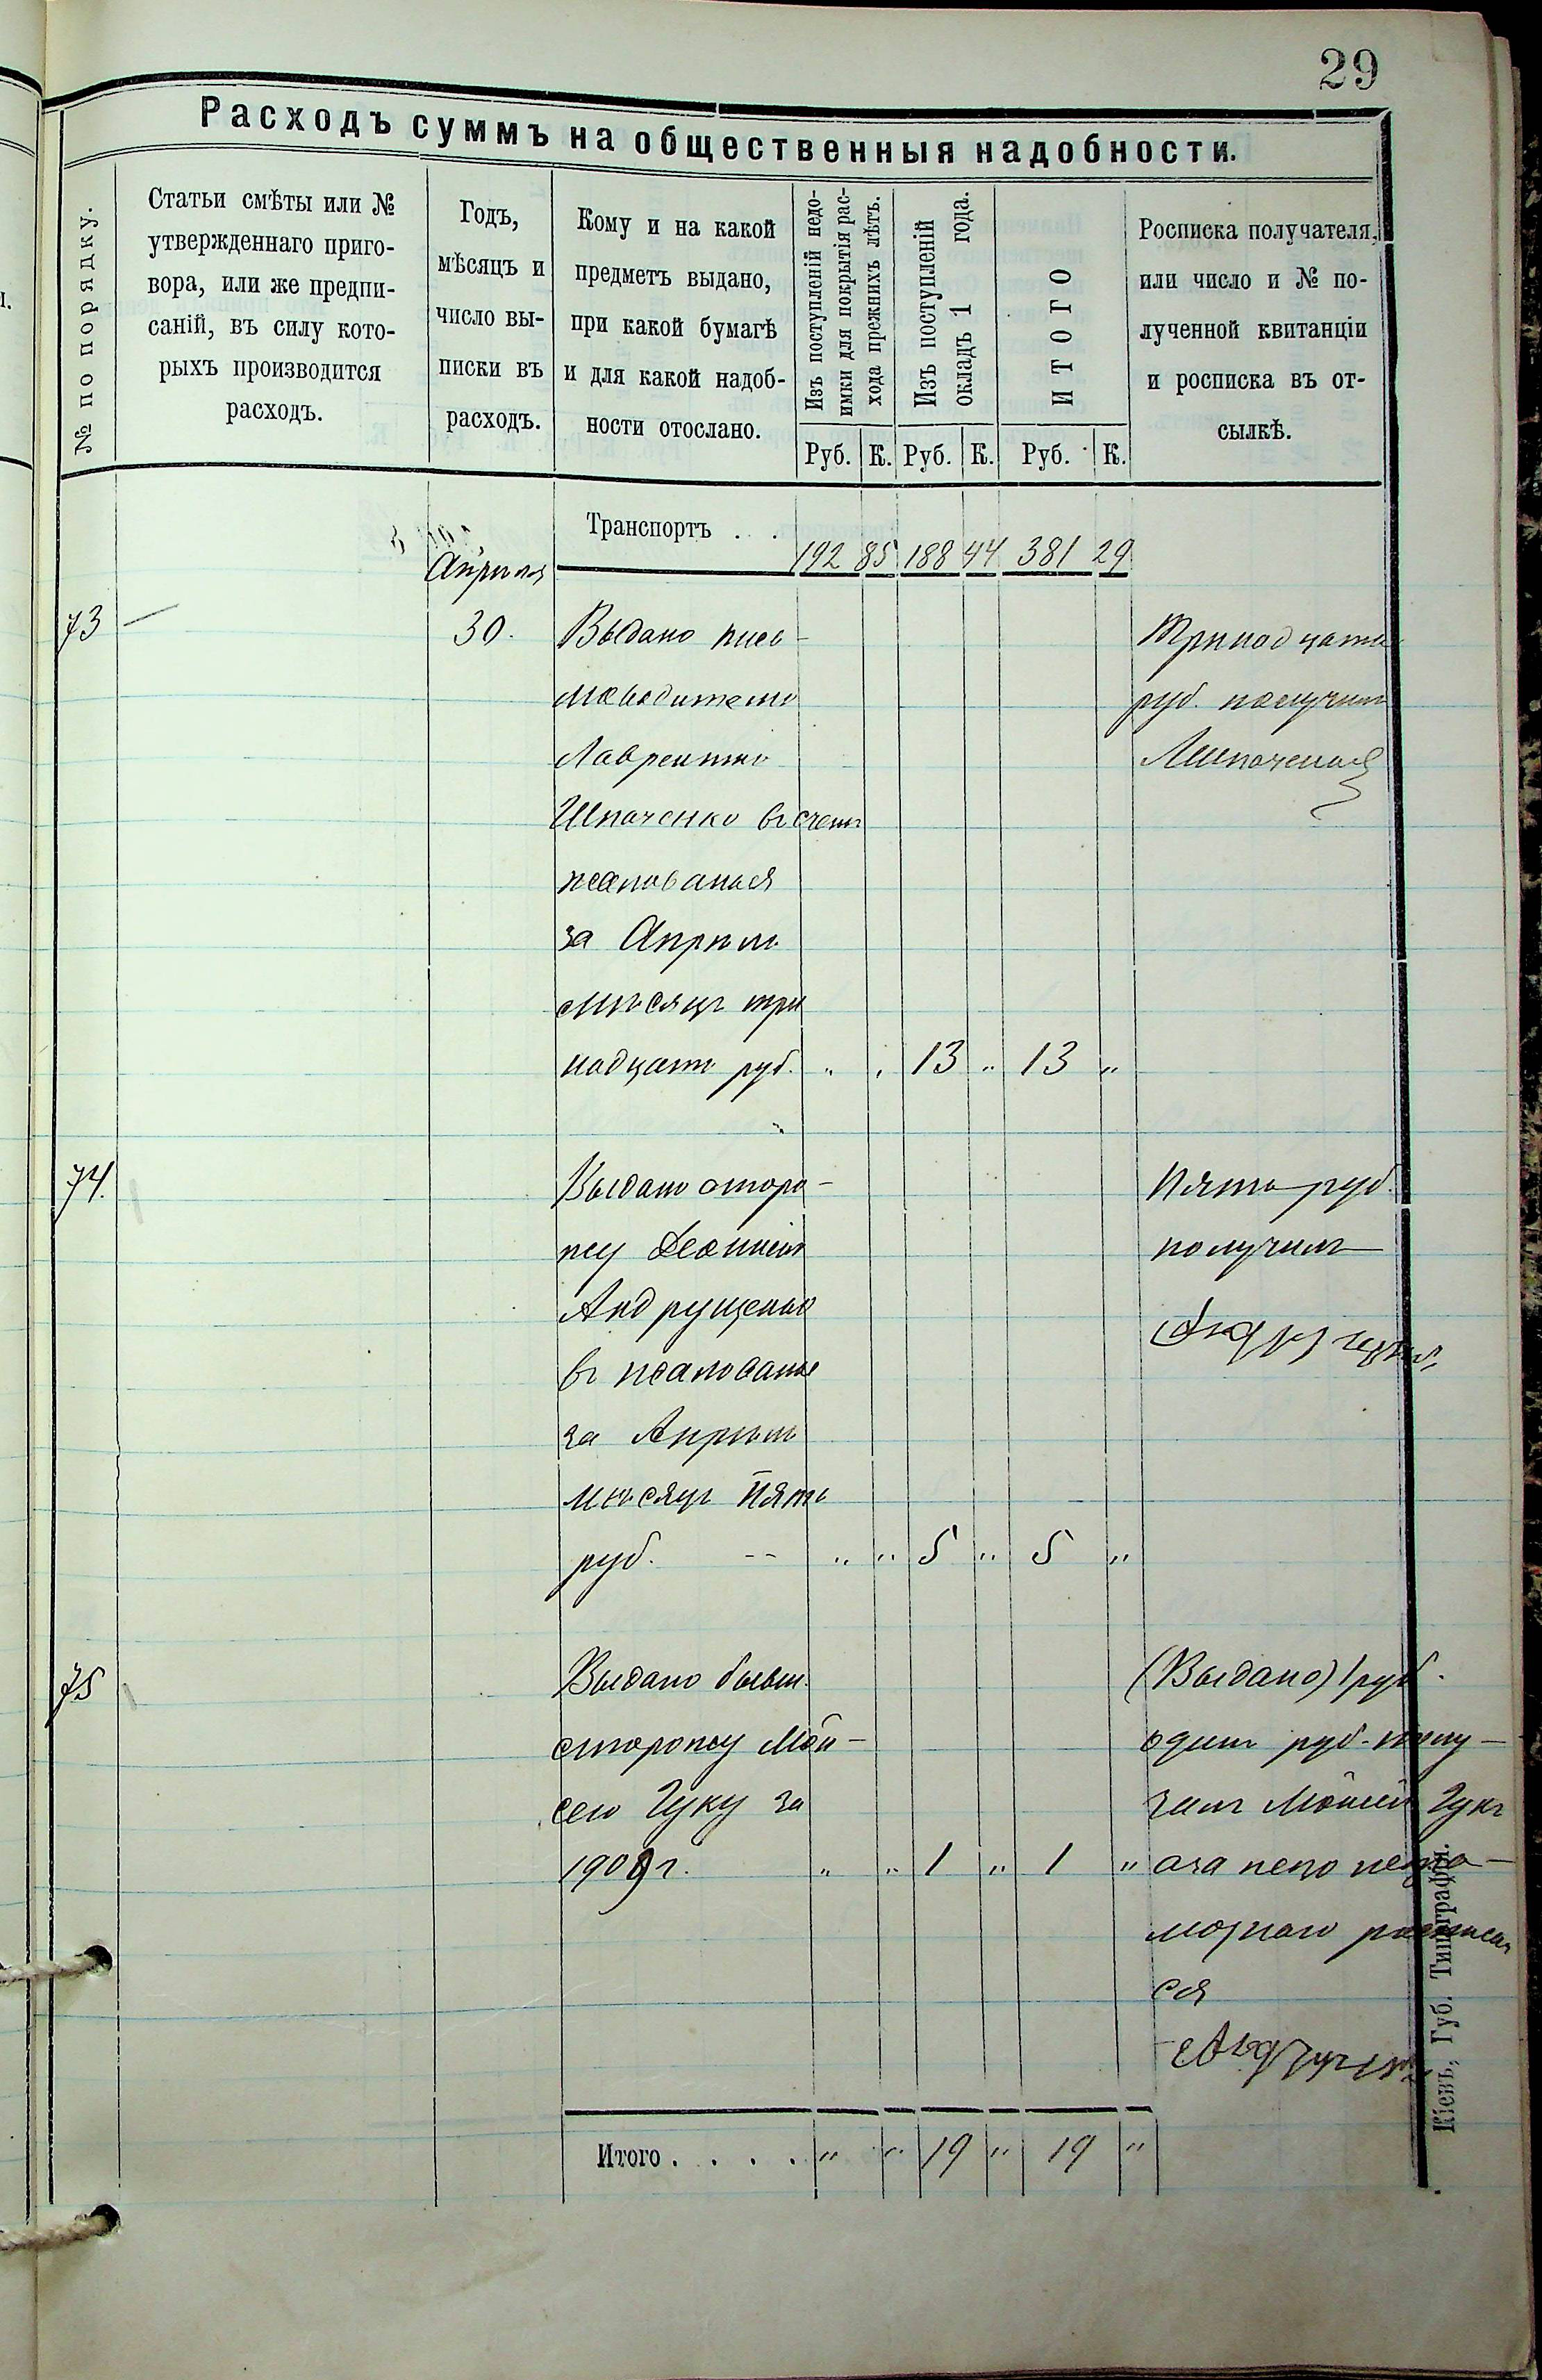 29
Расходъ суммъ на общественныя надобности.
№ по порядку.
Статьи смѣты или №
утвержденнаго приго-
вора, или же предпи-
саній, въ силу кото-
рыхъ производится
расходъ.
Годъ,
мѣсяцъ и
число вы-
писки въ
расходъ.
Кому и на какой
предметъ выдано,
при какой бумагѣ
и для какой надоб-
ности отослано.
Изъ поступленій недо-
имки для покрытія рас-
хода прежнихъ лѣтъ.
Изъ поступленій
окладъ 1 года.
ИТОГО
Росписка получателя,
или число и № по-
лученной квитанціи
и росписка въ от-
сылкѣ.
Руб. К. Руб. К. Руб. К.
Транспортъ . . 192 85 188 44 381 29
Апрѣля
73 — 30. Выдано пись-
моводителю
Лаврентію
Шпаченко въ счетъ
жалованья
за Апрѣль
мѣсяцъ три
надцать руб. „ „ 13 „ 13 „
Тринадцать
руб. получилъ
ЛШпаченко
74. Выдано сторо-
жу
Андрущенко
въ жалованье
за Апрѣль
мѣсяцъ Пять
руб. -- „ „ 5 „ 5 „
Пять руб.
получилъ
75 Выдано бывш.
сторожу Мой-
сею Гуку за
1909 г. „ „ 1 „ 1 „
(Выдано) 1 руб.
одинъ руб. полу-
чилъ Мойсей Гукъ
а за него негра-
мотнаго росписал
ся
Итого. . . . . „ „ 19 „ 19 „
Кіевъ, Губ. Типографія.